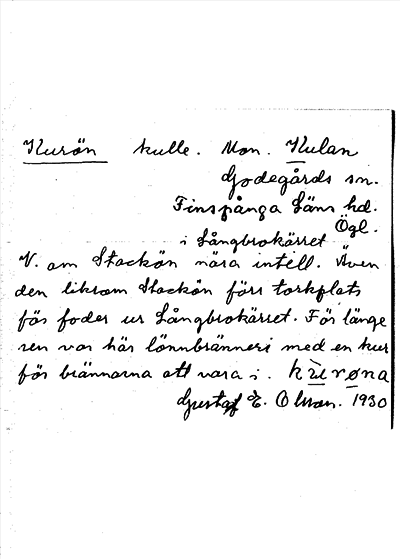 Kurön kulle. Mon. Kulan
Godegårds sn.
Finspånga Läns hd.
Ögl.
i Långbrokärret
V. om Stackön nära intill. Även
den liksom Stackön förr torkplats
för foder ur Långbrokärret. För länge
sen var här lönnbränneri med en kur
för brännarna att vara i. kùrøna
Gustaf E. Olsson. 1930